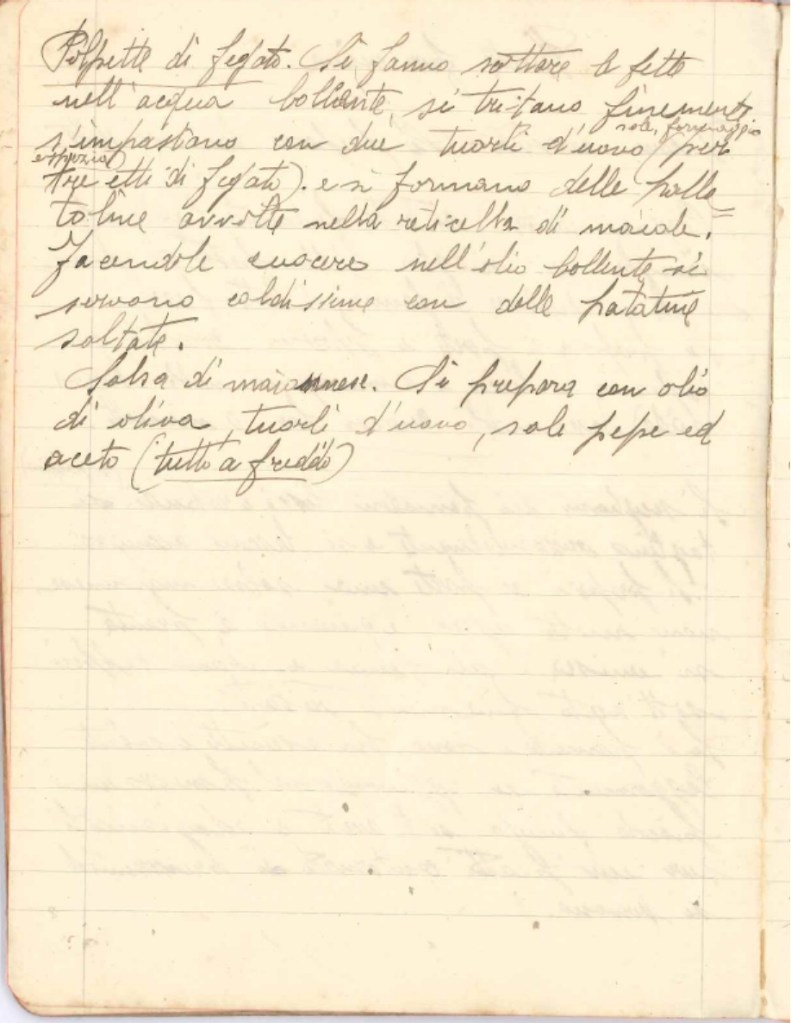 Polpette di fegato. Si fanno scottare le fette
nell'acqua bollente, si tritano finemente
s'impastano con due tuorli d'uovo (per
sale, formaggio
e spezia)
tre etti di fegato). e si formano delle palle=
toline avvolte nella reticella di maiale.
Facendole cuocere nell'olio bollente, si
servono caldissime con delle patatine
saltate.
Salsa di maionnese. Si prepara con olio
di oliva, tuorli d'uovo, sale pepe ed
aceto (tutto a freddo)